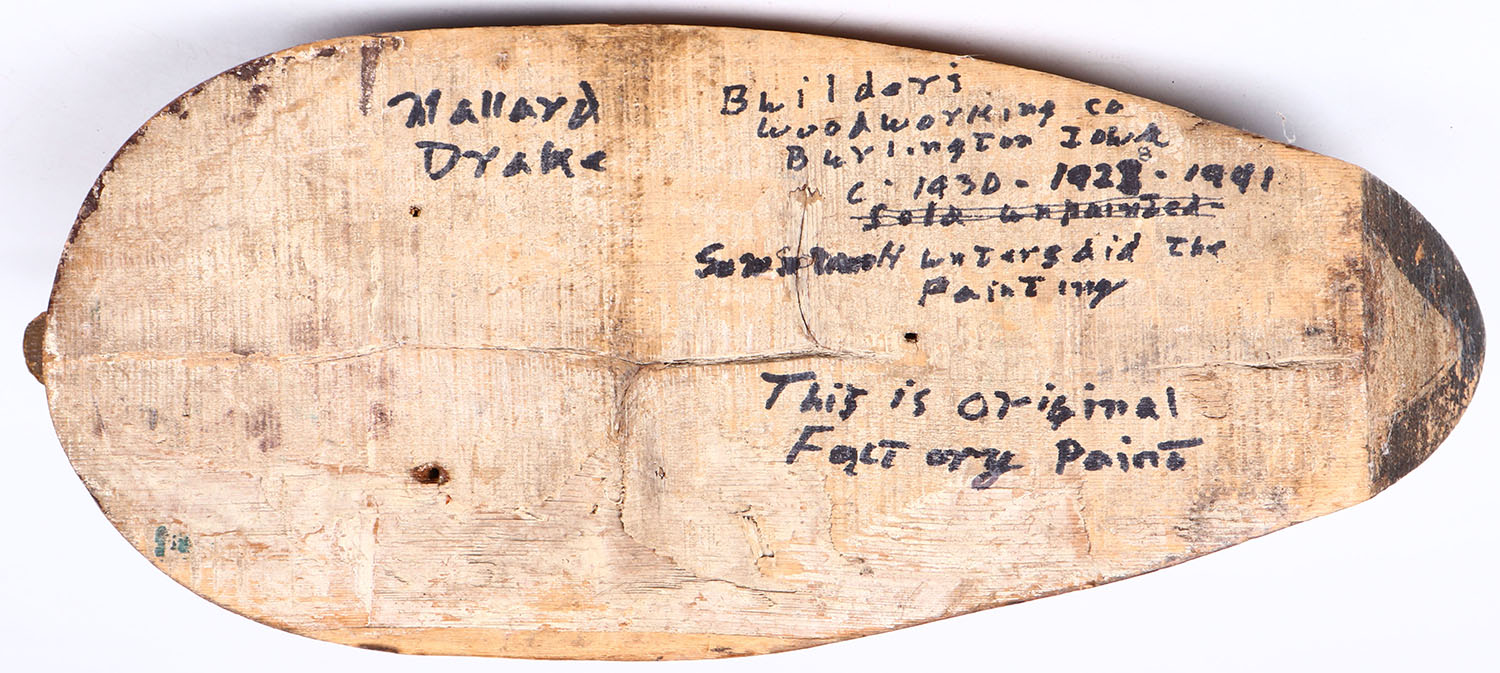 Mallard
Drake
Builders
Woodworking co
Burlington Iowa
8
C. 1930 - 1928 - 1941
Sold unpainted
Waters did the
Painting
This is original
Factory Paint